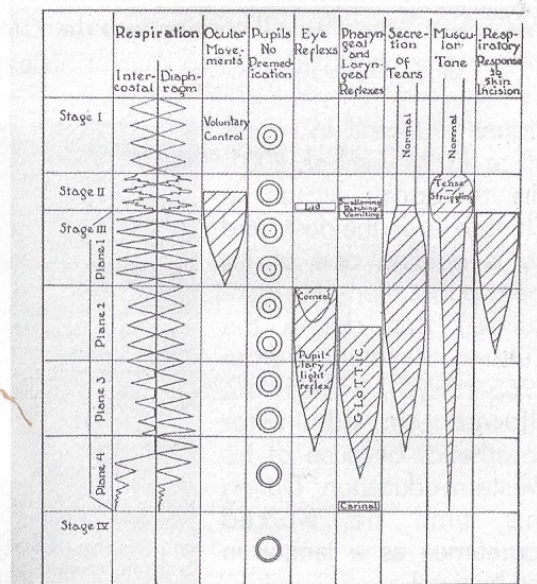 Respiration
Inter-
costal
Diaph-
ragm
Ocular
Move-
ments
Pupils
No
Premed-
ication
Eye
Reflexs
Pharyn
geal and
Laryn-
geal
Reflexes
Secre-
tion
of
Tears
Muscu-
lar
Tone
Resp-
iratory
Response
to
Skin
Incision
Stage I
Voluntary
Control
Normal
Normal
Stage II
Lid
Swallowing
Retching
Vomiting
Tense
Struggling
Stage III
Plane 1
Plane 2
Corneal
Pupil-
lary
light
reflex
GLOTTIC
Plane 3
Plane 4
Carinal
Stage IV